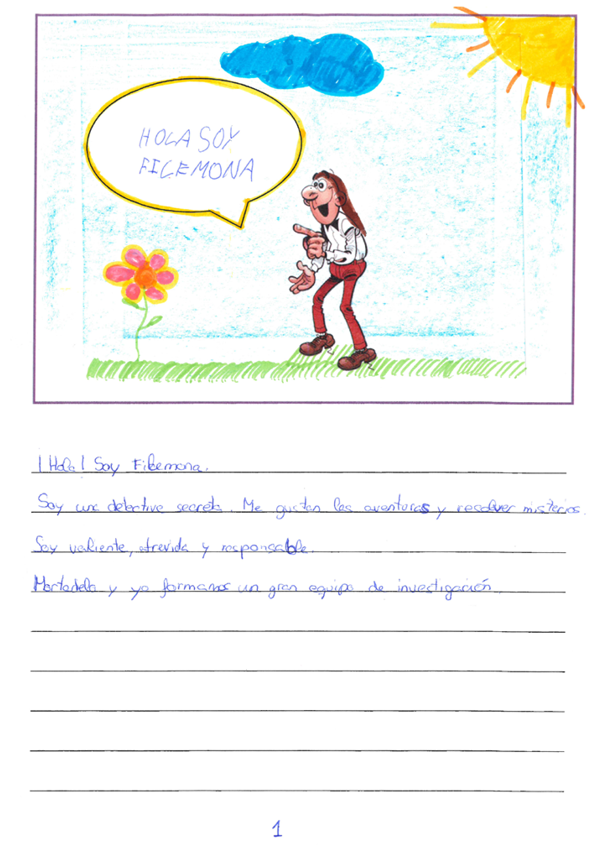 HOLA SOY
FILEMONA
¡Hola! Soy Filemona.
Soy una detective secreta. Me gustan las aventuras y resolver misterios.
Soy valiente, atrevida y responsable.
Mortadelo y yo formamos un gran equipo de investigación
1